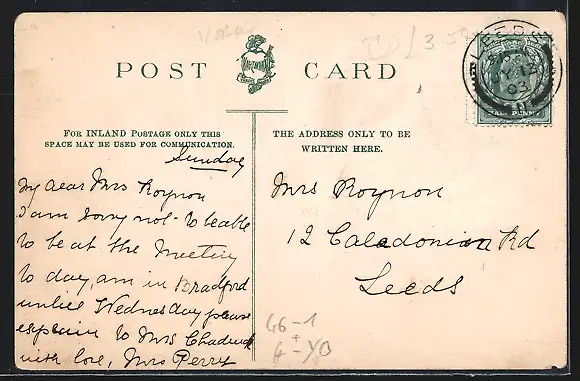 POST CARD
LEEDS
03
HALFPENNY
FOR INLAND POSTAGE ONLY THIS
SPACE MAY BE USED FOR COMMUNICATION.
THE ADDRESS ONLY TO BE
WRITTEN HERE.
Sunday
My dear Mrs Roynon
I am sorry not to be able
to be at the Meeting
to day, am in Bradford
untill Wednesday please
explain to Mrs Chadwick
with love, Mrs Perry
Mrs Roynon
12 Caledonian Rd
Leeds